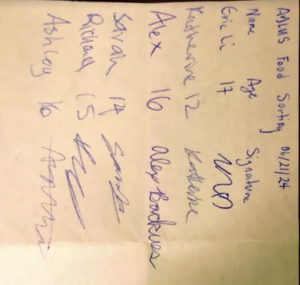 AMLHS Food Sorting 06/21/24
Name Age Signature
Eric Li 17
Katherine 12 Katherine
Alex 16 Alex Backues
Sarah 14 Sarah
Richard 15
Ashley 16